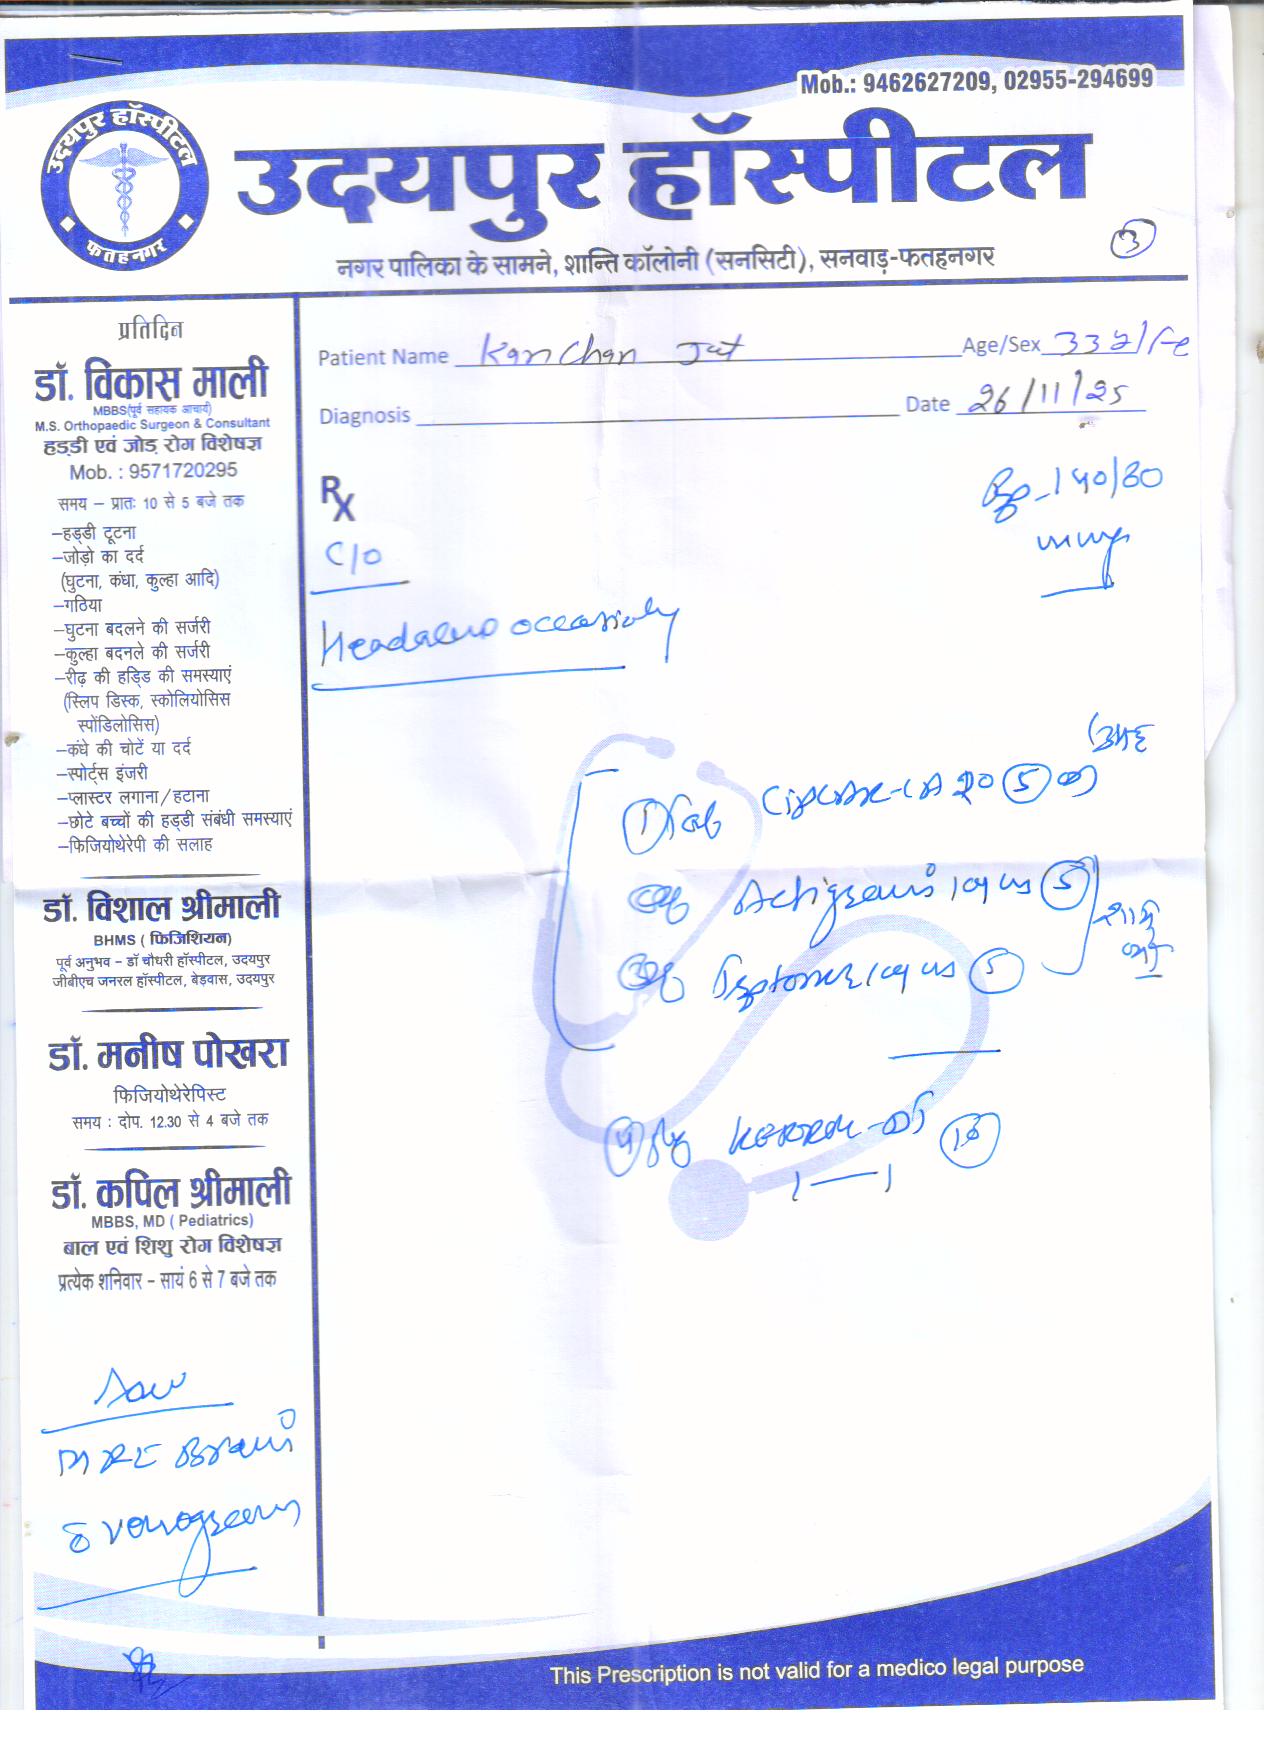 Mob.: 9462627209, 02955-294699
उदयपुर हॉस्पीटल
फतहनगर
उदयपुर हॉस्पीटल
नगर पालिका के सामने, शान्ति कॉलोनी (सनसिटी), सनवाड़-फतहनगर
3
प्रतिदिन
डॉ. विकास माली
MBBS(पूर्व सहायक आचार्य)
M.S. Orthopaedic Surgeon & Consultant
हड्डी एवं जोड़ रोग विशेषज्ञ
Mob. : 9571720295
समय – प्रातः 10 से 5 बजे तक
–हड्डी टूटना
–जोड़ो का दर्द
(घुटना, कंधा, कुल्हा आदि)
–गठिया
–घुटना बदलने की सर्जरी
–कुल्हा बदनले की सर्जरी
–रीढ़ की हड्डि की समस्याएं
(स्लिप डिस्क, स्कोलियोसिस
स्पोंडिलोसिस)
–कंधे की चोटें या दर्द
–स्पोर्ट्स इंजरी
–प्लास्टर लगाना/हटाना
–छोटे बच्चों की हड्डी संबंधी समस्याएं
–फिजियोथेरेपी की सलाह
डॉ. विशाल श्रीमाली
BHMS ( फिजिशियन)
पूर्व अनुभव – डॉ चौधरी हॉस्पीटल, उदयपुर
जीबीएच जनरल हॉस्पीटल, बेड़वास, उदयपुर
डॉ. मनीष पोखरा
फिजियोथेरेपिस्ट
समय : दोप. 12.30 से 4 बजे तक
डॉ. कपिल श्रीमाली
MBBS, MD ( Pediatrics)
बाल एवं शिशु रोग विशेषज्ञ
प्रत्येक शनिवार – सायं 6 से 7 बजे तक
Adv
MRI Brain
Venogram
Patient Name Kanchan Jat Age/Sex 33 y/Fe
Diagnosis Date 26/11/25
Rx
Bp-140/80
mmHg
C/O
Headache occasionaly
1 Tab 20 5
10 5
10 5
शाम
4
15
1—1
This Prescription is not valid for a medico legal purpose